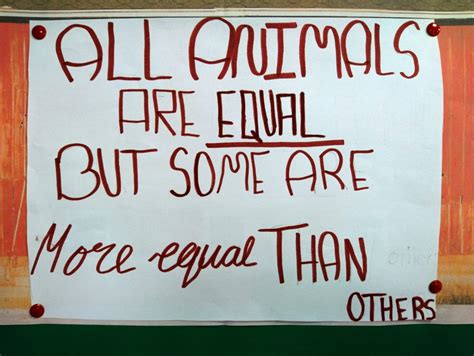 ALL ANIMALS
ARE EQUAL
BUT SOME ARE
More equal THAN
OTHERS